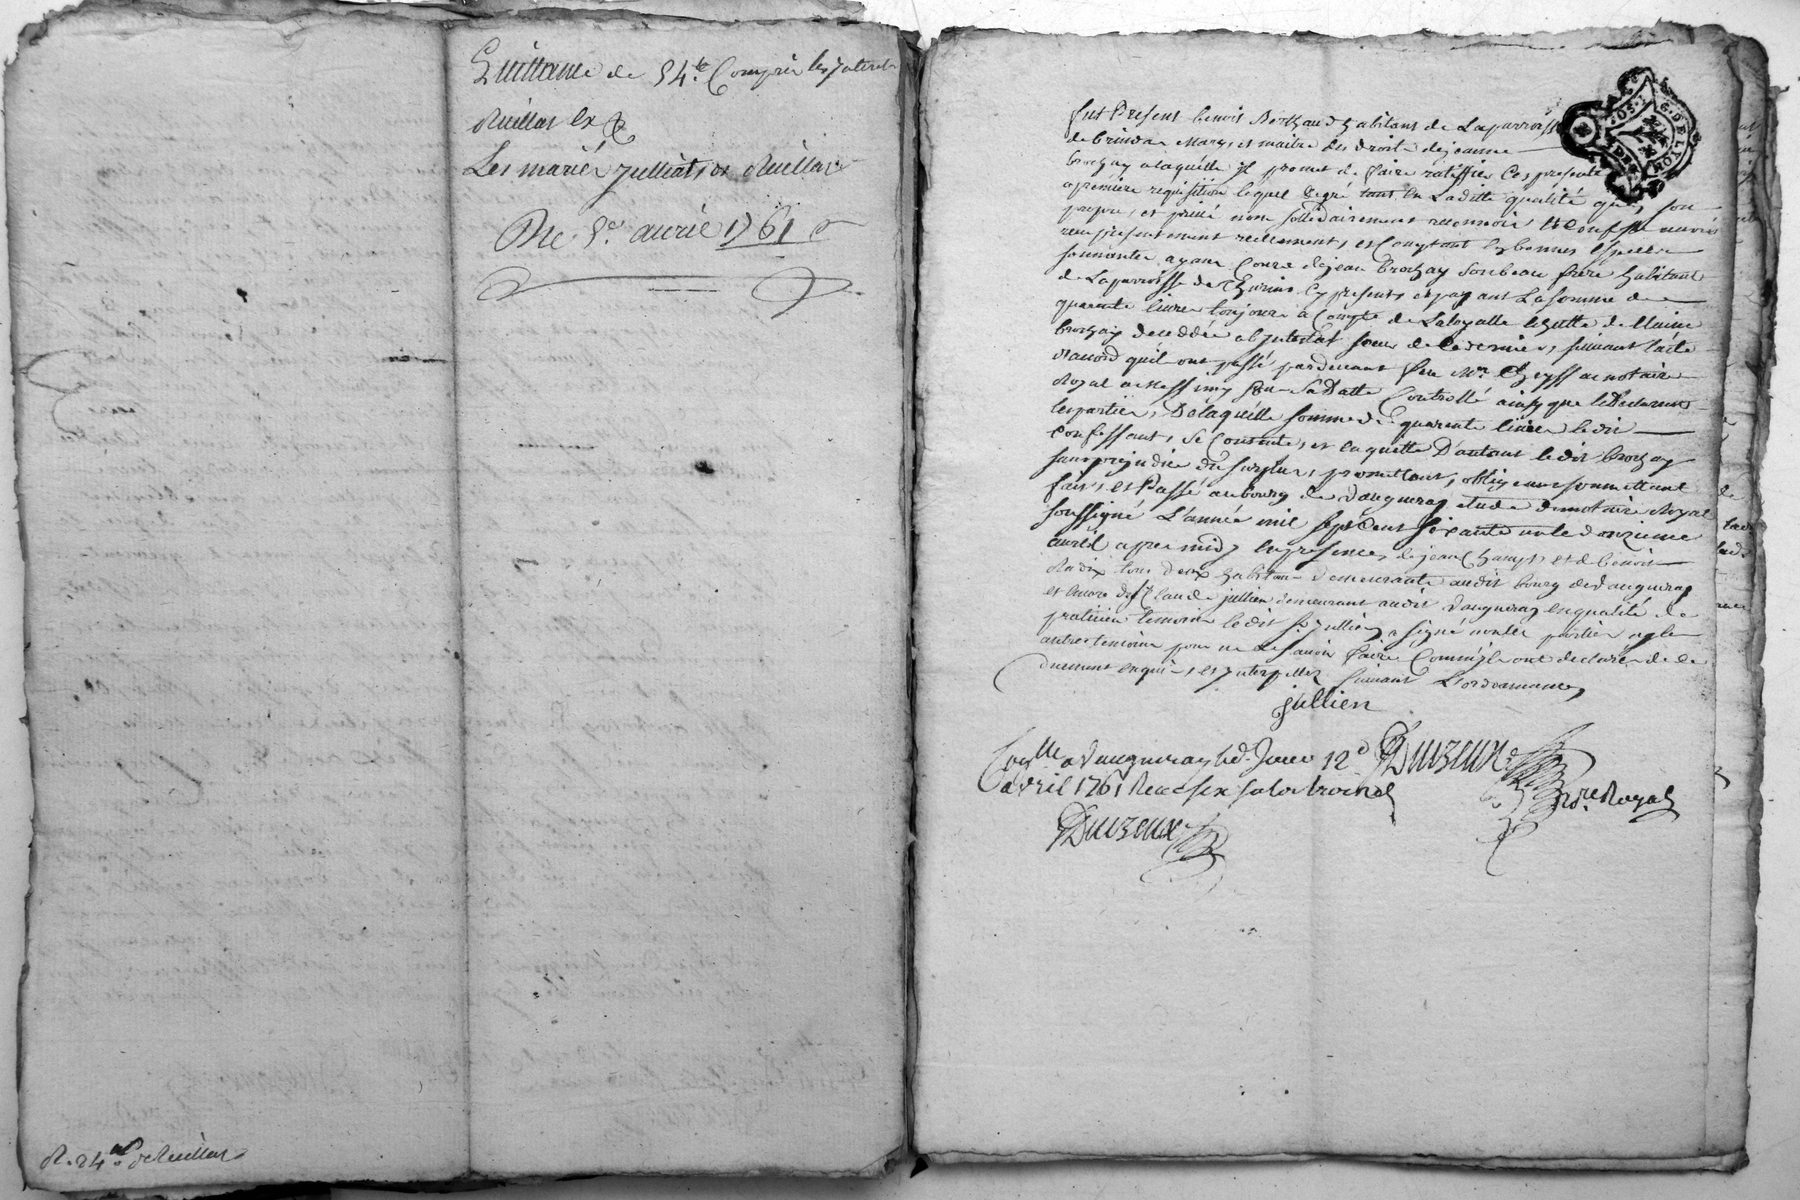 Quittance de 54.tt Compris les Interets
Ruillat Ex
Les mariés Julliat, et Ruillat
Du 5.e avril 1761
R. 24. Ruillat
fut Present benoit Berthaud habitant de La parroisse
de brindas Mary, et maitre des droits de jeanne
brochay a laquelle il promet de faire ratiffier Ces presentes
a premiere requisition lequel de gré tant en Laditte qualité que, son
propre, et privé nom sollidairement reconnoit et Confesse avoir
reçu presentement reellement, et Comptant En bonnes Especes
sonnantes ayant Cours de jean brochay son beau frere habitant
de La parroisse de Thurins Cy present, et payant La somme de
quarente livres toujours a Compte de La
brochay decedée ab intestat soeur de Ce dernier, suivant l'acte
d'accord qu'il ont passé pardevant feu Mr. notaire
Royal a Messimy sous sa Datte Controllé ainsy que le declarent
les parties, De laquelle somme de quarente livres le dit
Confessant, se Contente, et En quitte D'autant le dit brochay
sans prejudice du surplus, promettant, obligeant soumettant
fait, et Passé au bourg de Vaugneray etude du notaire Royal
soussigné L'année mil sept Cent soixante un le douzieme
avril apres midy En presence, de jean Champ, et de benoit
Radix tous deux habitans demeurants audit bourg de Vaugneray
et Encore de Sr. Claude jullien demeurant audit Vaugneray en qualité de
praticien temoins ledit Sr. jullien a signé non les parties ny les
autres temoins pour ne Le savoir faire Comme ils ont declaré de Ce
duement enquis, et Interpellés suivant L'ordonnance,
jullien
Conlle a Vaugneray led. Jour 12e
avril 1761 Reçu six sols trois d
Duvzeux
Duvzeux
Nore Royal
G. DE LYON